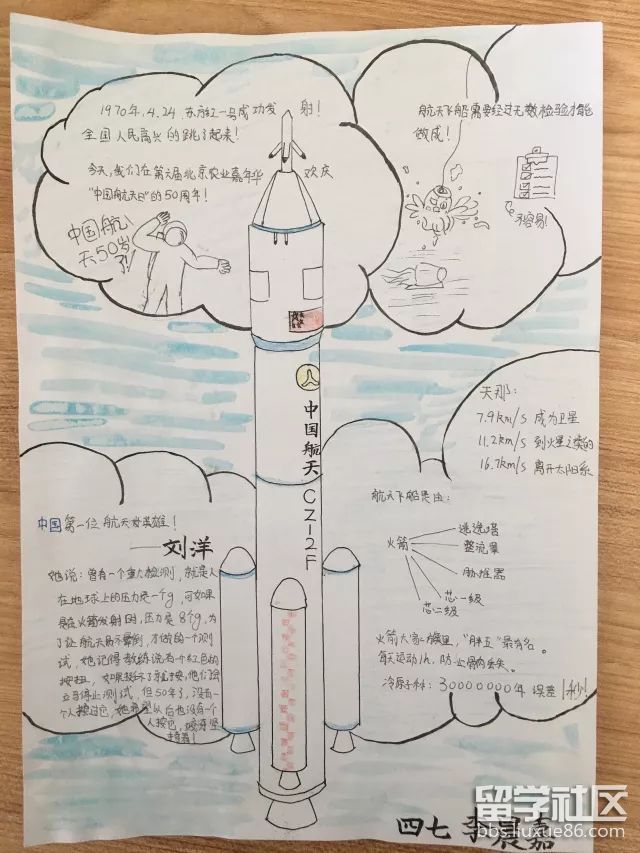 1970年.4.24.东方红一号成功发射!
全国人民高兴的跳了起来!
今天,我们在第六届北京农业嘉年华欢庆
"中国航天日"的50周年!
中国航
天50岁
了!
航天飞船需要经过无数检验才能
做成!
不容易!
天那:
7.9km/s 成为卫星
11.2km/s 到火星之类的
16.7km/s 离开太阳系
中国航天 CZ-2F
中国第一位航天女英雄!
——刘洋
她说:曾有一个重力检测,就是人
在地球上的压力是一个g,可如果
是在火箭发射时,压力是8个g,为
了证航天员不晕倒,才做的一个测
试,她记得教练说有个红色的
按扭,如果坚持不了就按,他们会
立马停止测试,但50年了,没有一
个人按过它,她希望从后也没有一个
人按它,
航天飞船是由:
火箭
逃逸塔
整流罩
助推器
芯一级
芯二级
火箭大家族里,"胖五"最有名。
每天运动1h,防止骨肉丢失。
冷原子钟:30000000年 误差1秒!
四七 李晨嘉
留学社区
bbs.liuxue86.com